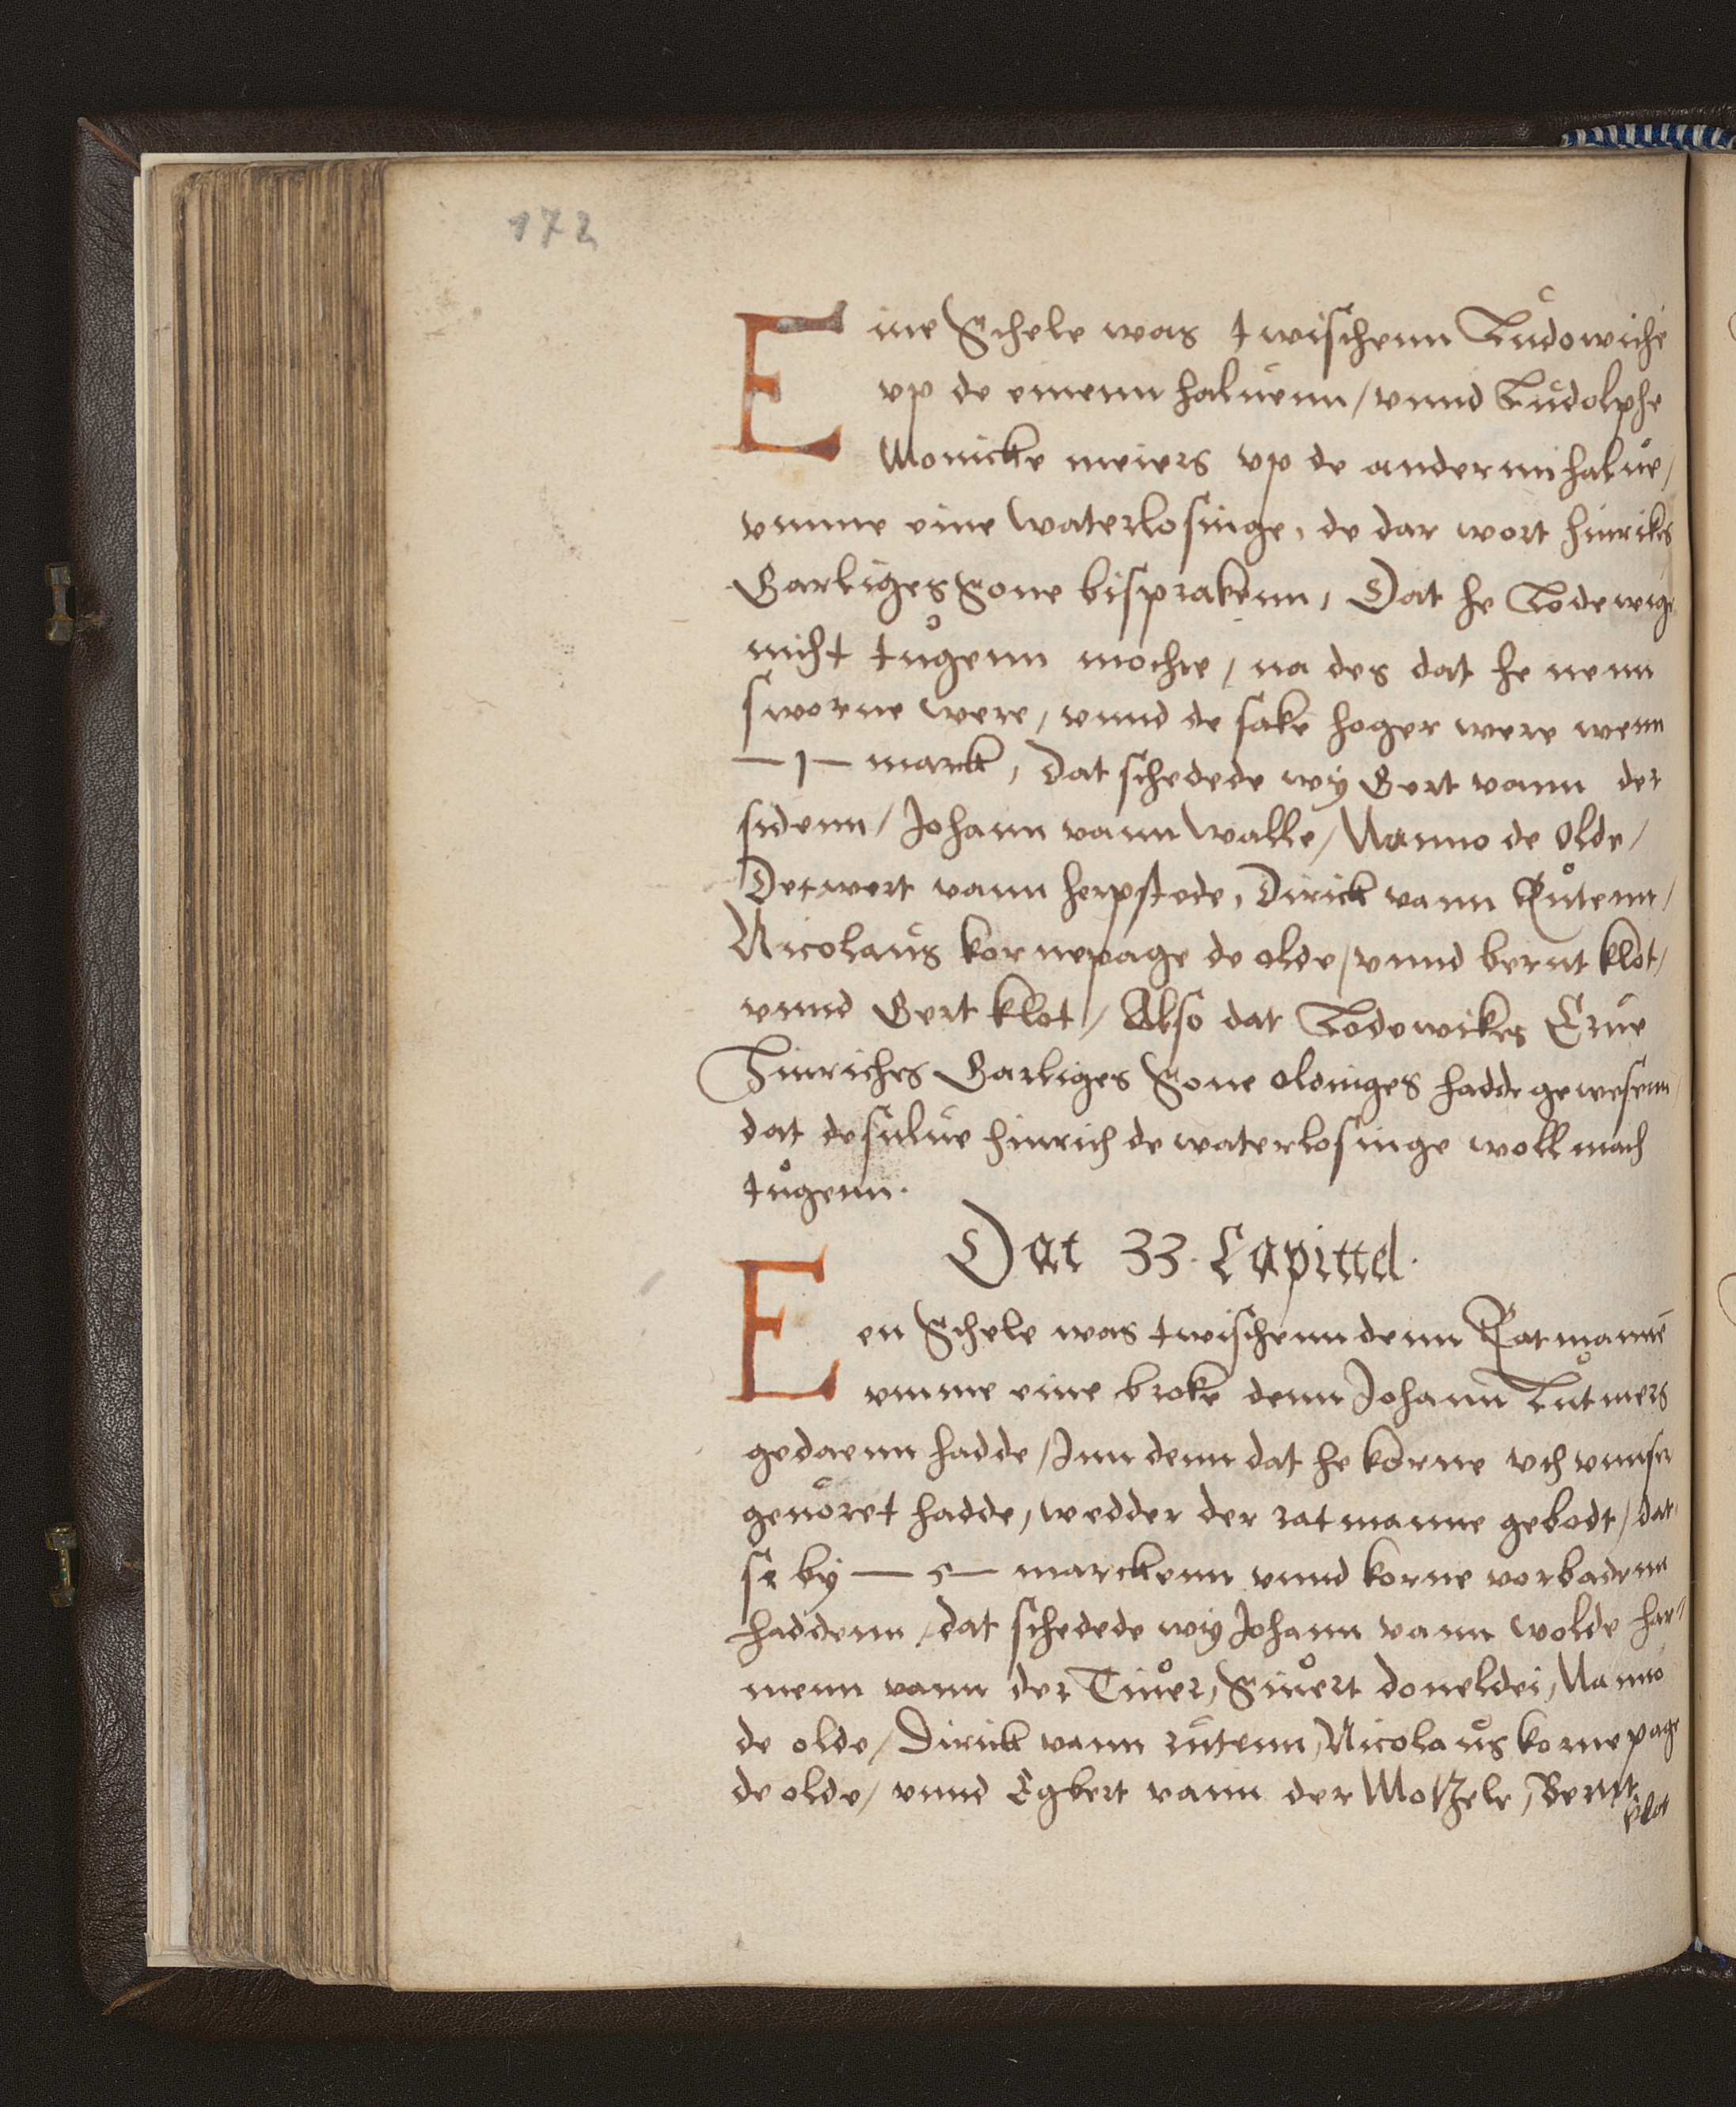 172
Eine Schele was twischenn Ludowiche
vp de einenn haluenn / vnnd Ludolphe
Monicke meiers vp de andernn halue /
vmme eine waterlosinge, de dar wort hinrikes
Garliges Sone bisprakenn, Dat he Lodewige
nicht tugenn mochte, na des dat he nenn
sworne were, vnnd de sake hoger were wenn
— 1 — marck, dat schedede wy Gert vann der
sidenn / Johann vann walle / Nanno de Olde /
Detwert vann herpstede, Dirick vann Rutenn /
Nicolaus kornepage de olde / vnnd bernt klot /
vnnd Gert klot / Also dat Lodewikes Erue
Hinriches Garliges Sone oldinges hadde gewesenn /
dat desulue hinrich de waterlosinge woll mach
tugenn.
Dat 33. Capittel.
Een Schele was twischenn denn Ratmannē
vmme eine broke denn Johann Lutmers
gedaenn hadde / Inn denn dat he korne vth
geuoret hadde, wedder der ratmanne gebodt / dat
se by — 5 — marckenn vnnd korne vorbadenn
haddenn, dat schedede wy Johann vann wolde har//
menn vann der Tiuer, Siuert doneldei, Nanno
de olde / Dirick vann rutenn, Nicolaus kornepage
de olde / vnnd Egbert vann der Motzele, Bernt
klot